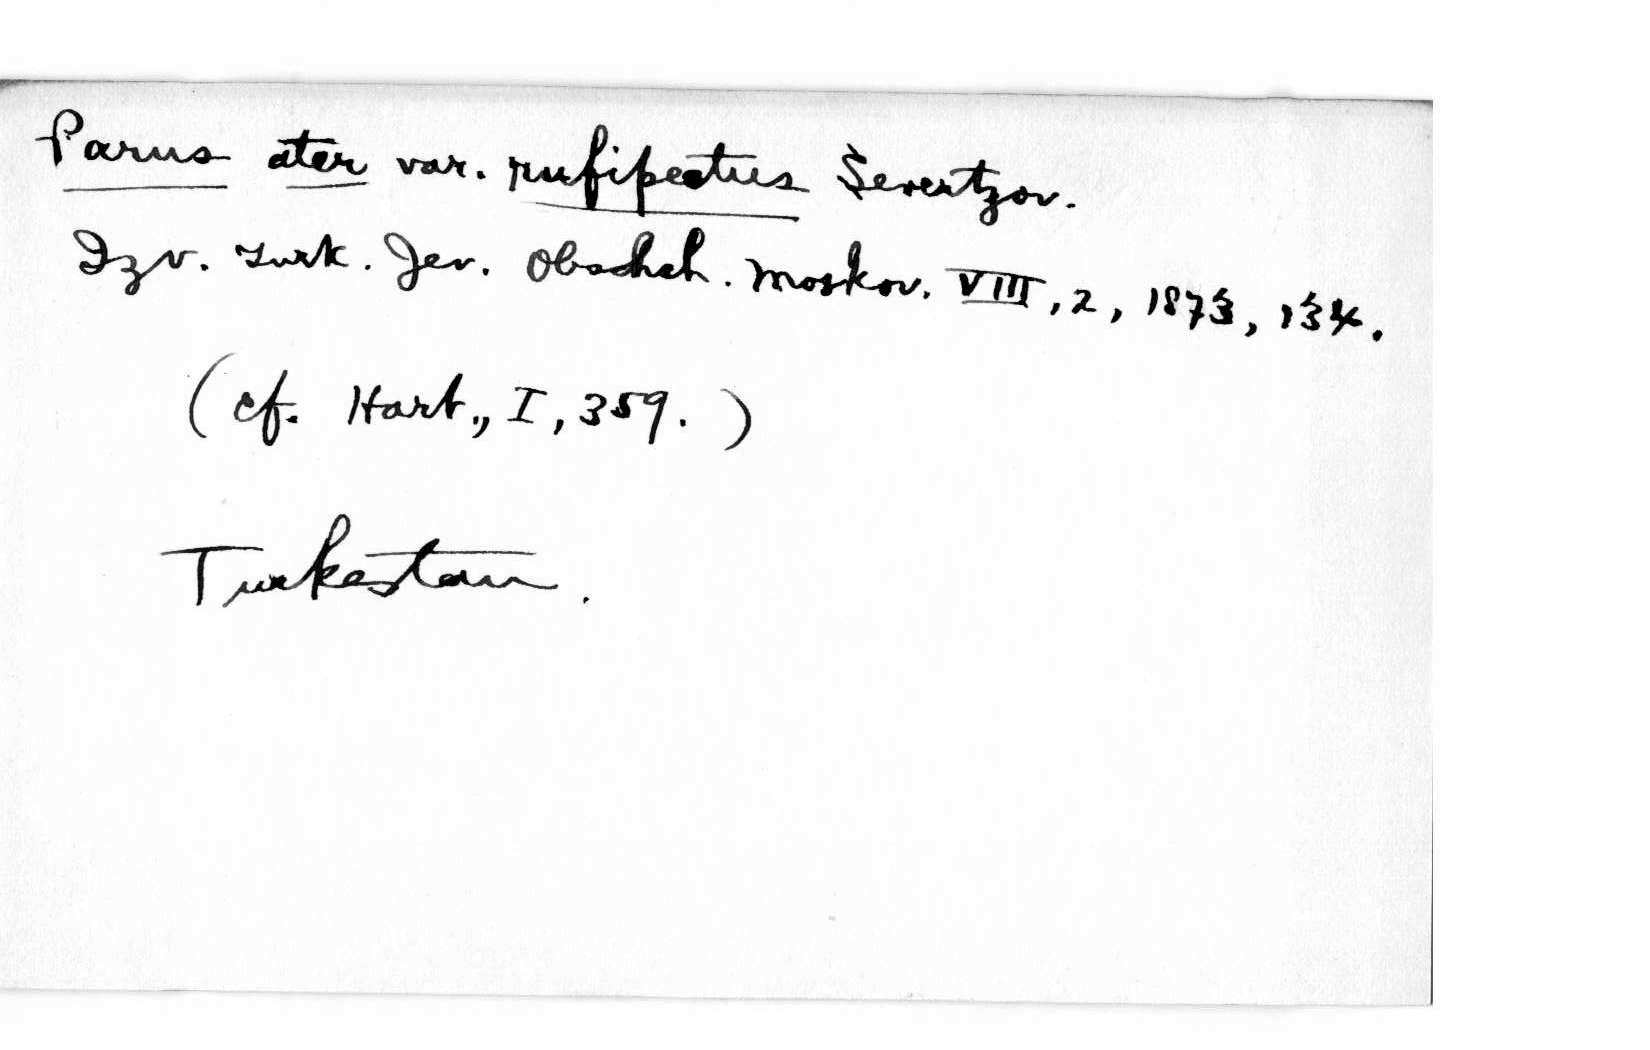 Parus ater var. rufipectus Severtzov.
Izv. Turk. Jev. Obschch. Moskov. VIII, 2, 1873, 134.
(cf. Hart., I, 359.)
Turkestan.